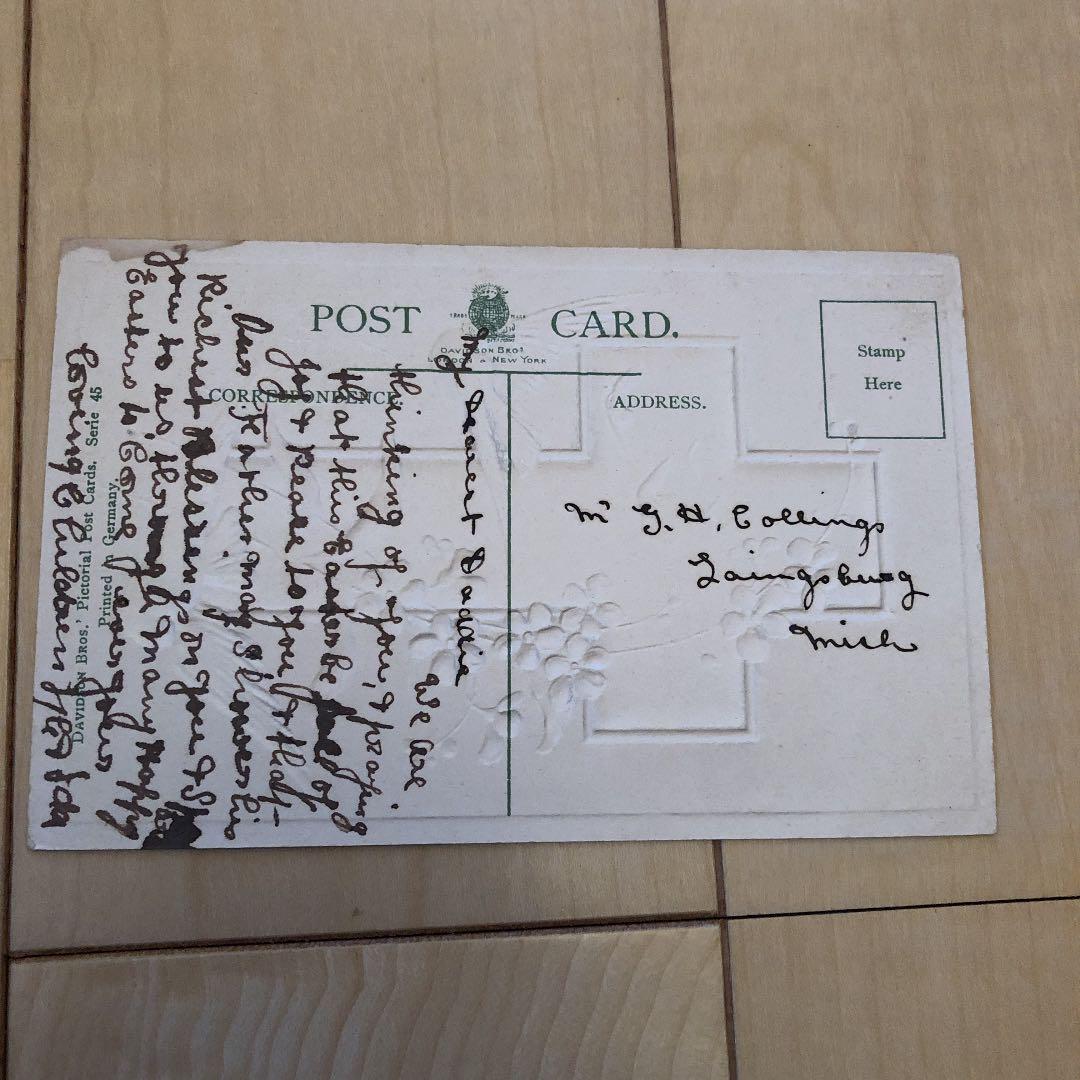 POST CARD.
TRADE MARK
DAVIDSON BROS
LONDON & NEW YORK
CORRESPONDENCE
ADDRESS.
Stamp
Here
My Dearest Daddie
We are
thinking of you, & praying
that this Easter be full of
joy & Peace to you & that
Our Father may Shower his
Richest Blessings on you &
you to us through many Happy
Easters to Come
Loving Children
Mr G. H. Collings
Laingsburg
Mich
DAVIDSON BROS.' Pictorial Post Cards, Serie 45
Printed in Germany.